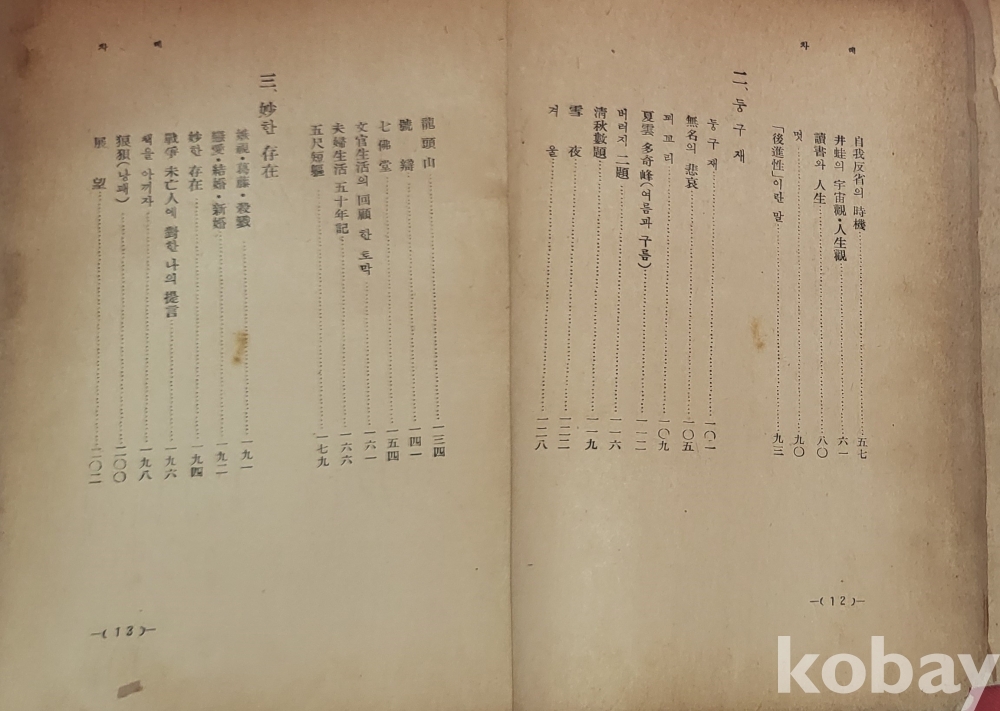 차 례
自我反省의 時機 五七
井蛙의 宇宙觀・人生觀 六一
讀書와 人生 八〇
멋 九〇
「後進性」이란 말 九三
二、둥구재
둥구재 一〇一
無名의 悲哀 一〇五
꾀꼬리 一〇九
夏雲多奇峰(여름과 구름) 一一二
버러지 二題 一一六
淸秋數題 一一九
雪夜 一二二
겨울 一二八
—( 12 )—
차 례
龍頭山 一三四
號辯 一四一
七佛堂 一五四
文官生活의 回顧 한 토막 一六一
夫婦生活 五十年記 一六六
五尺短軀 一七九
三、妙한 存在
嫉視・葛藤・殺戮 一九一
戀愛・結婚・新婚 一九二
妙한 存在 一九四
戰爭 未亡人에 對한 나의 提言 一九六
책을 아끼자 一九八
狼狽(낭패) 二〇〇
展望 二〇二
—( 13 )—
kobay